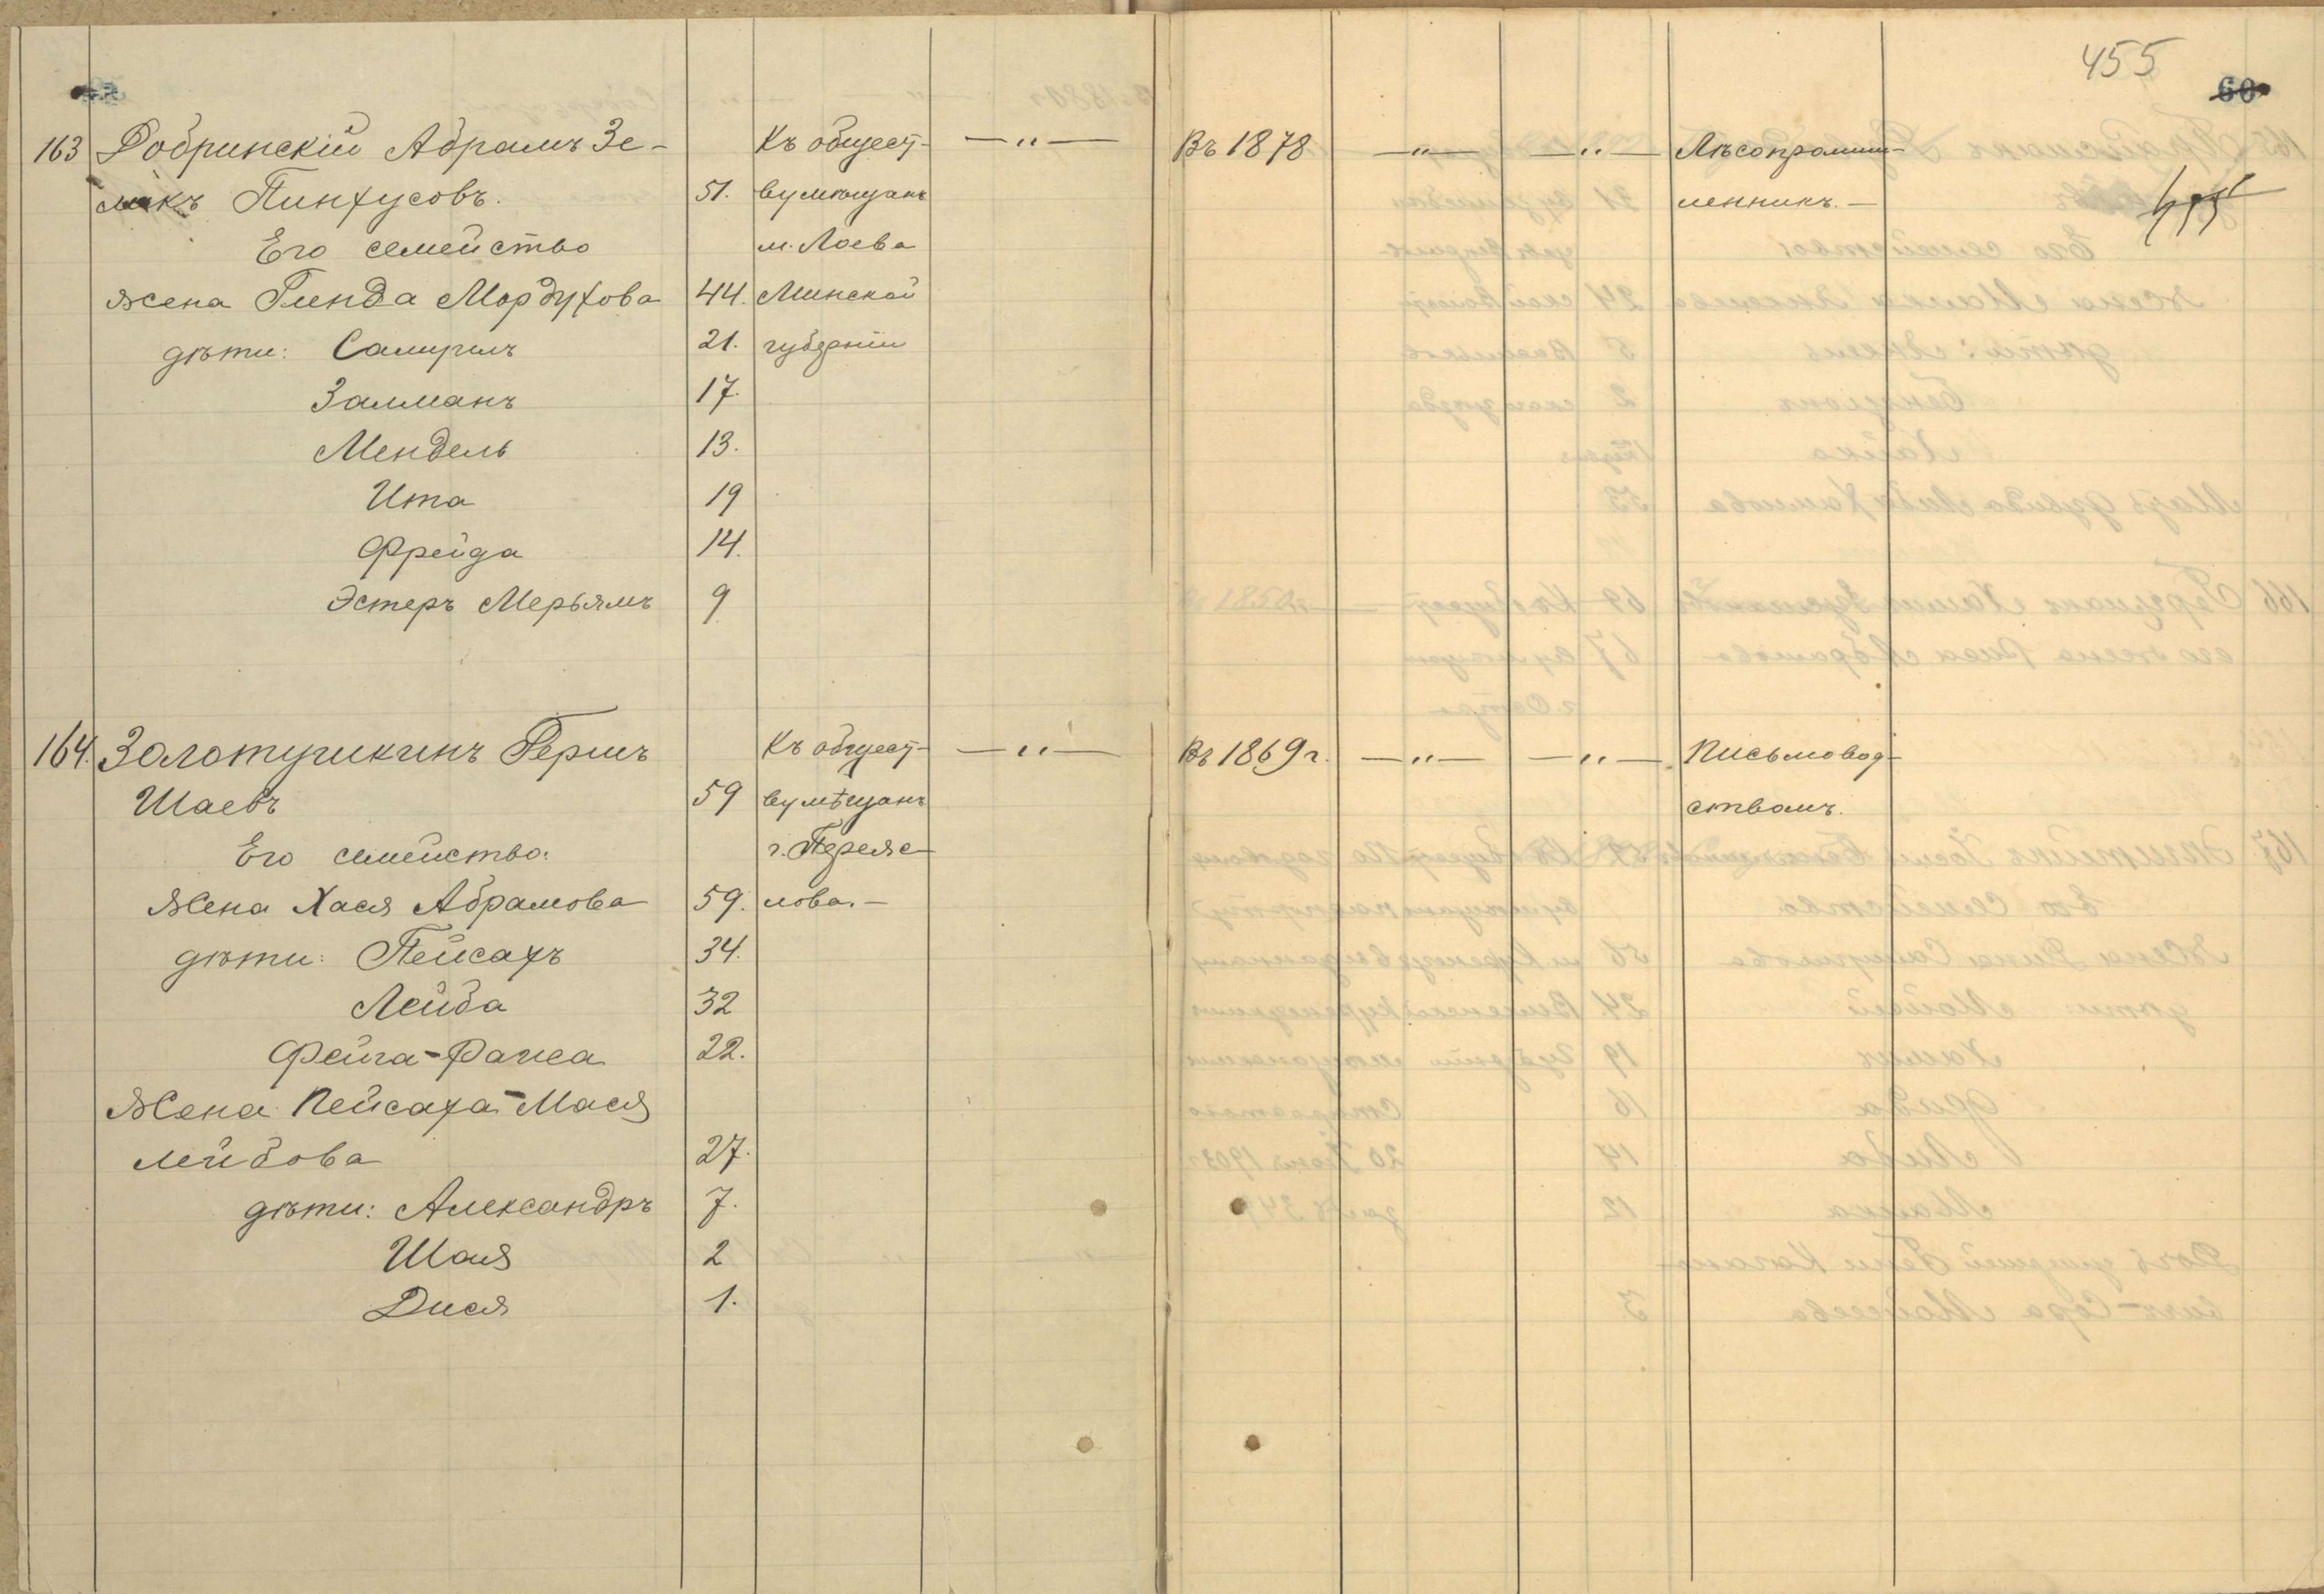 455
60
163 Добринскій Абрамъ Зе- Къ общест- —〃— Въ 1878 —〃— —〃— Лѣсопромыш-
ликъ Пинхусовъ. 51. ву мѣщанъ ленникъ.— 455
Его семейство м. Лоева
жена Гинда Мордухова 44. Минской
дѣти: Самуилъ 21. губерніи
Залманъ 17.
Мендель 13.
Ита 19
Фрейда 14.
Эстеръ Мерьямъ 9
164. Золотушкинъ Гершъ Къ общест- —〃— Въ 1869 г. —〃— —〃— Письмовод-
Шаевъ 59 ву мѣщанъ ствомъ.
Его семейство: г. Переяс-
Жена Хася Абрамова 59. лова.—
дѣти: Пейсахъ 34.
Лейба 32
Фейга-Раиса 22.
Жена Пейсаха-Мася
Лейбова 27.
дѣти: Александръ 7.
Шая 2
Дися 1.